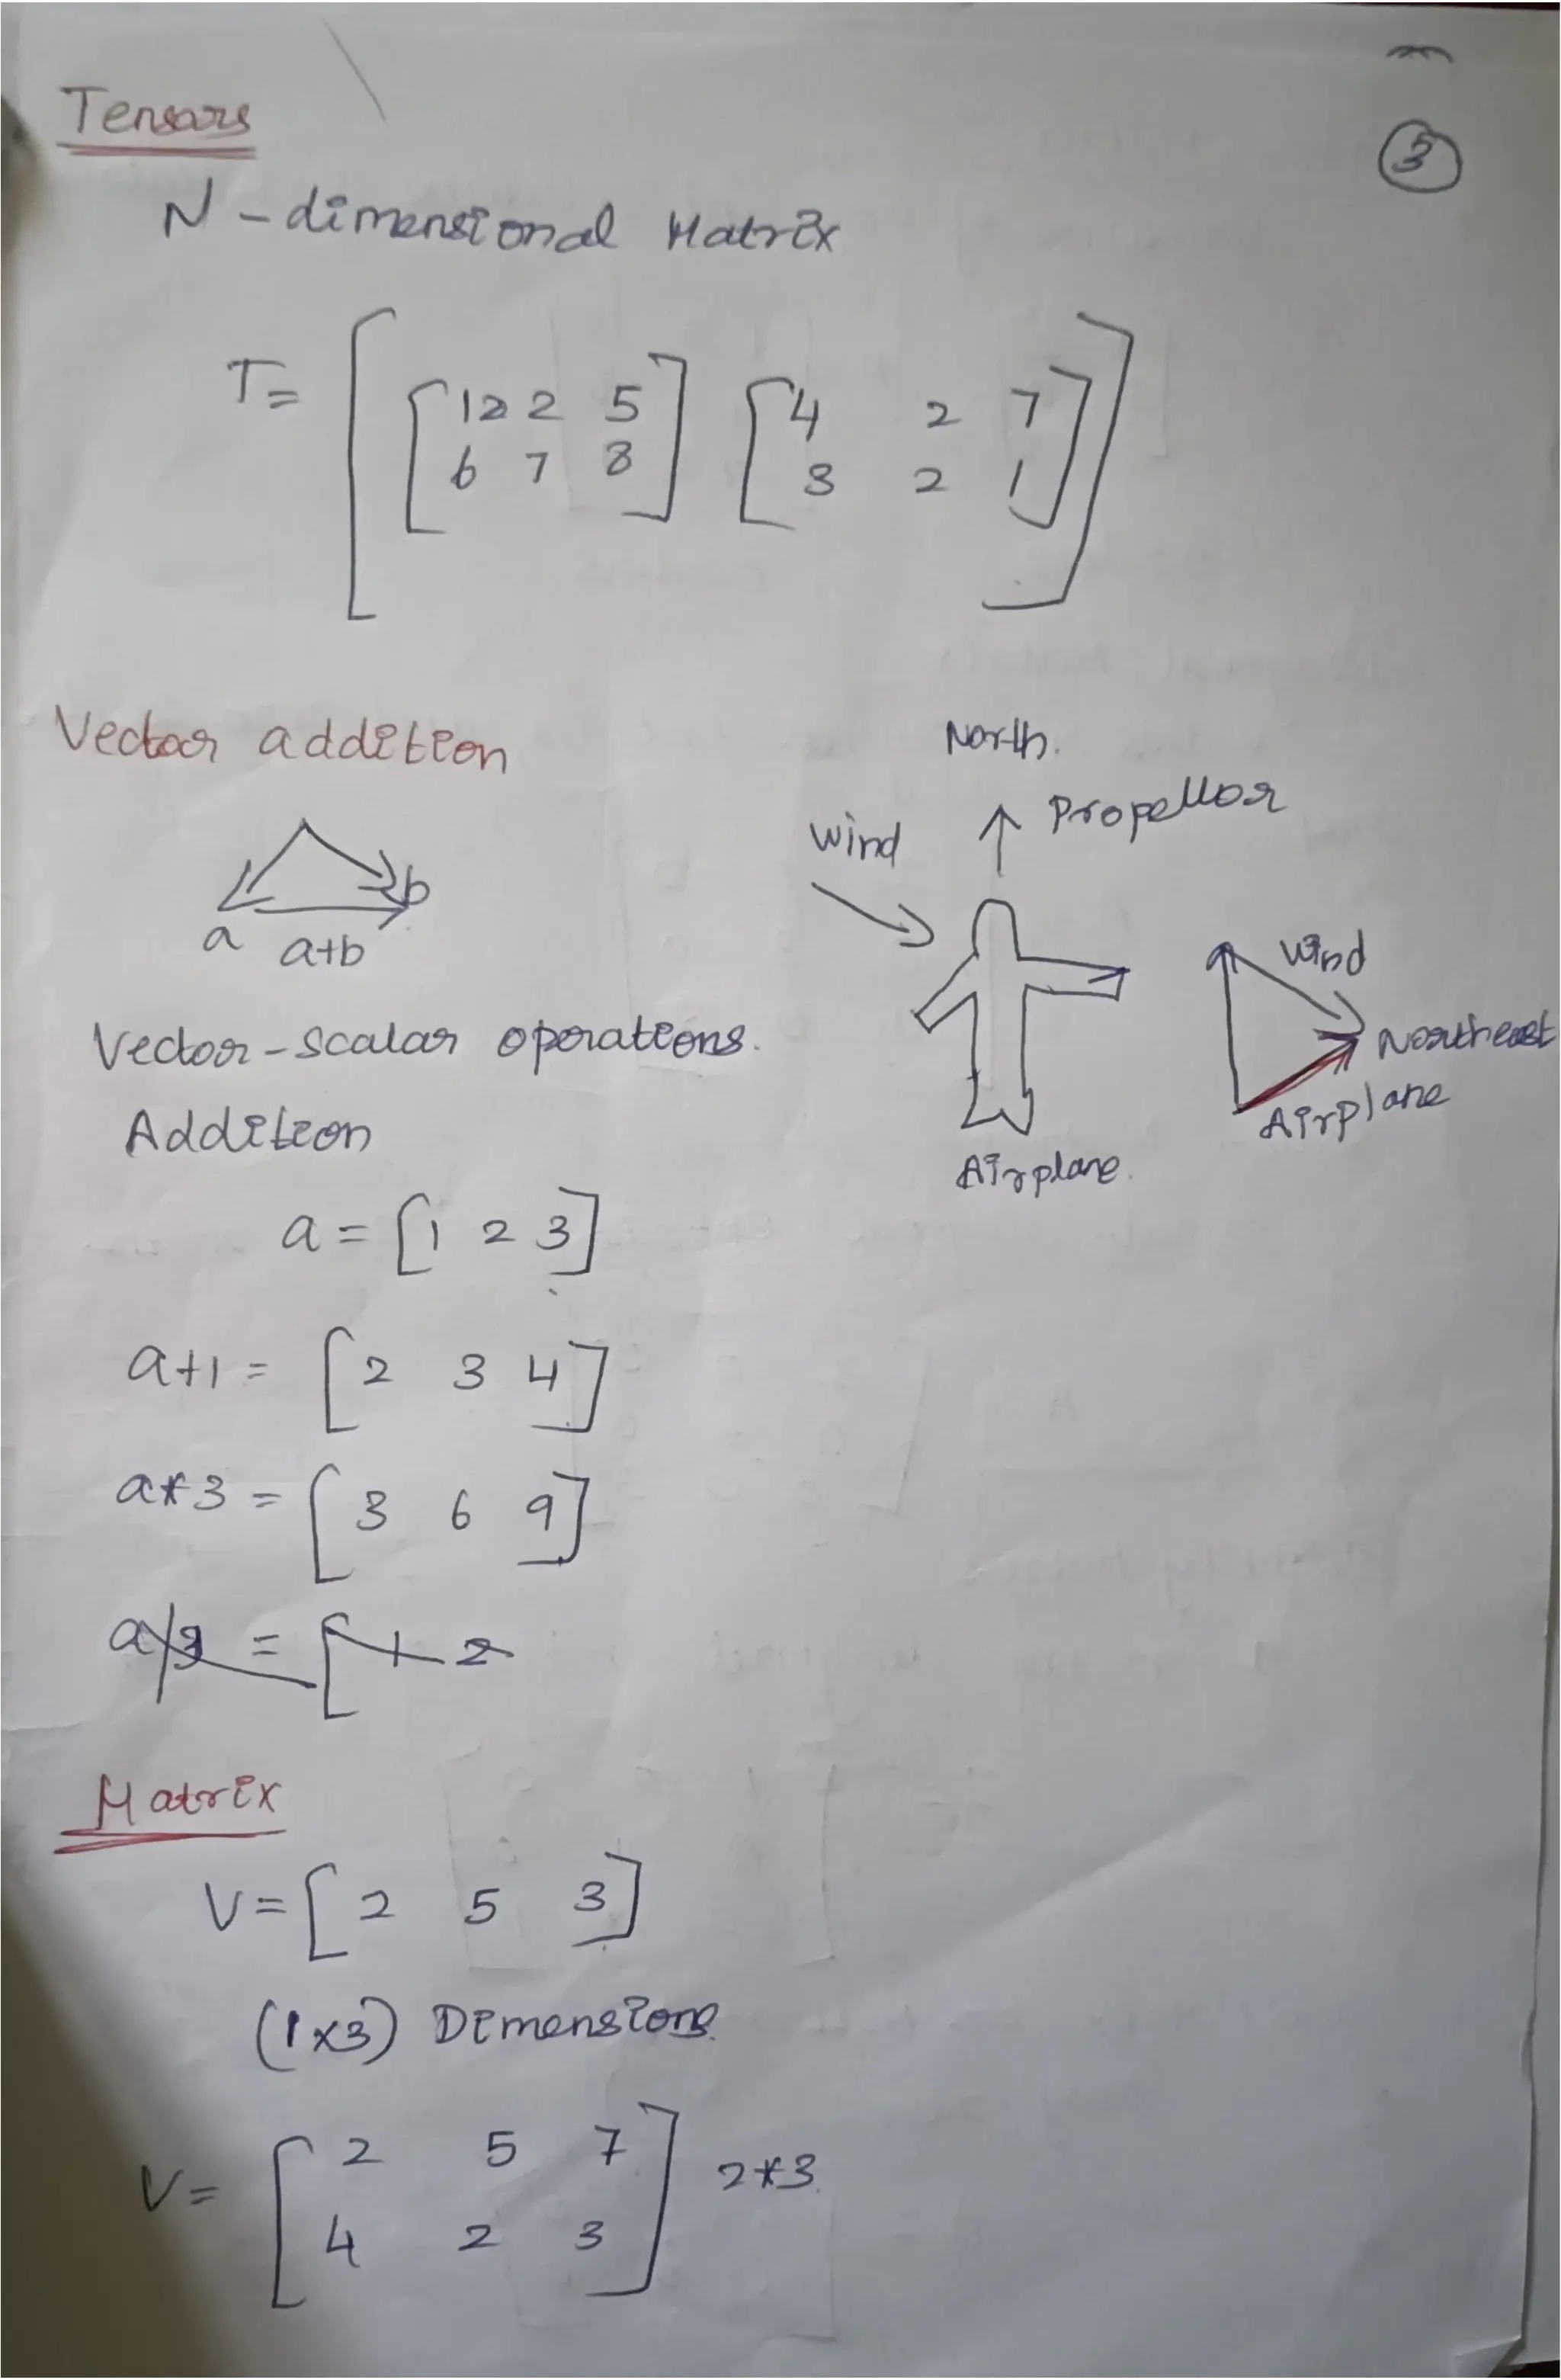 3
Tensors
N-dimensional Matrix
T= [ [ 12 2 5 ] [ 4 2 7 ] ]
6 7 8 3 2 1
Vector addition
a b
a+b
North.
Propellor
Wind
Airplane.
Wind
Northeast
Airplane
Vector-scalar operations.
Addition
a = [1 2 3]
a+1 = [2 3 4]
a*3 = [3 6 9]
a/3 = [ 1 2
Matrix
V = [2 5 3]
(1x3) Dimensions.
V = [ 2 5 7 ] 2*3.
4 2 3